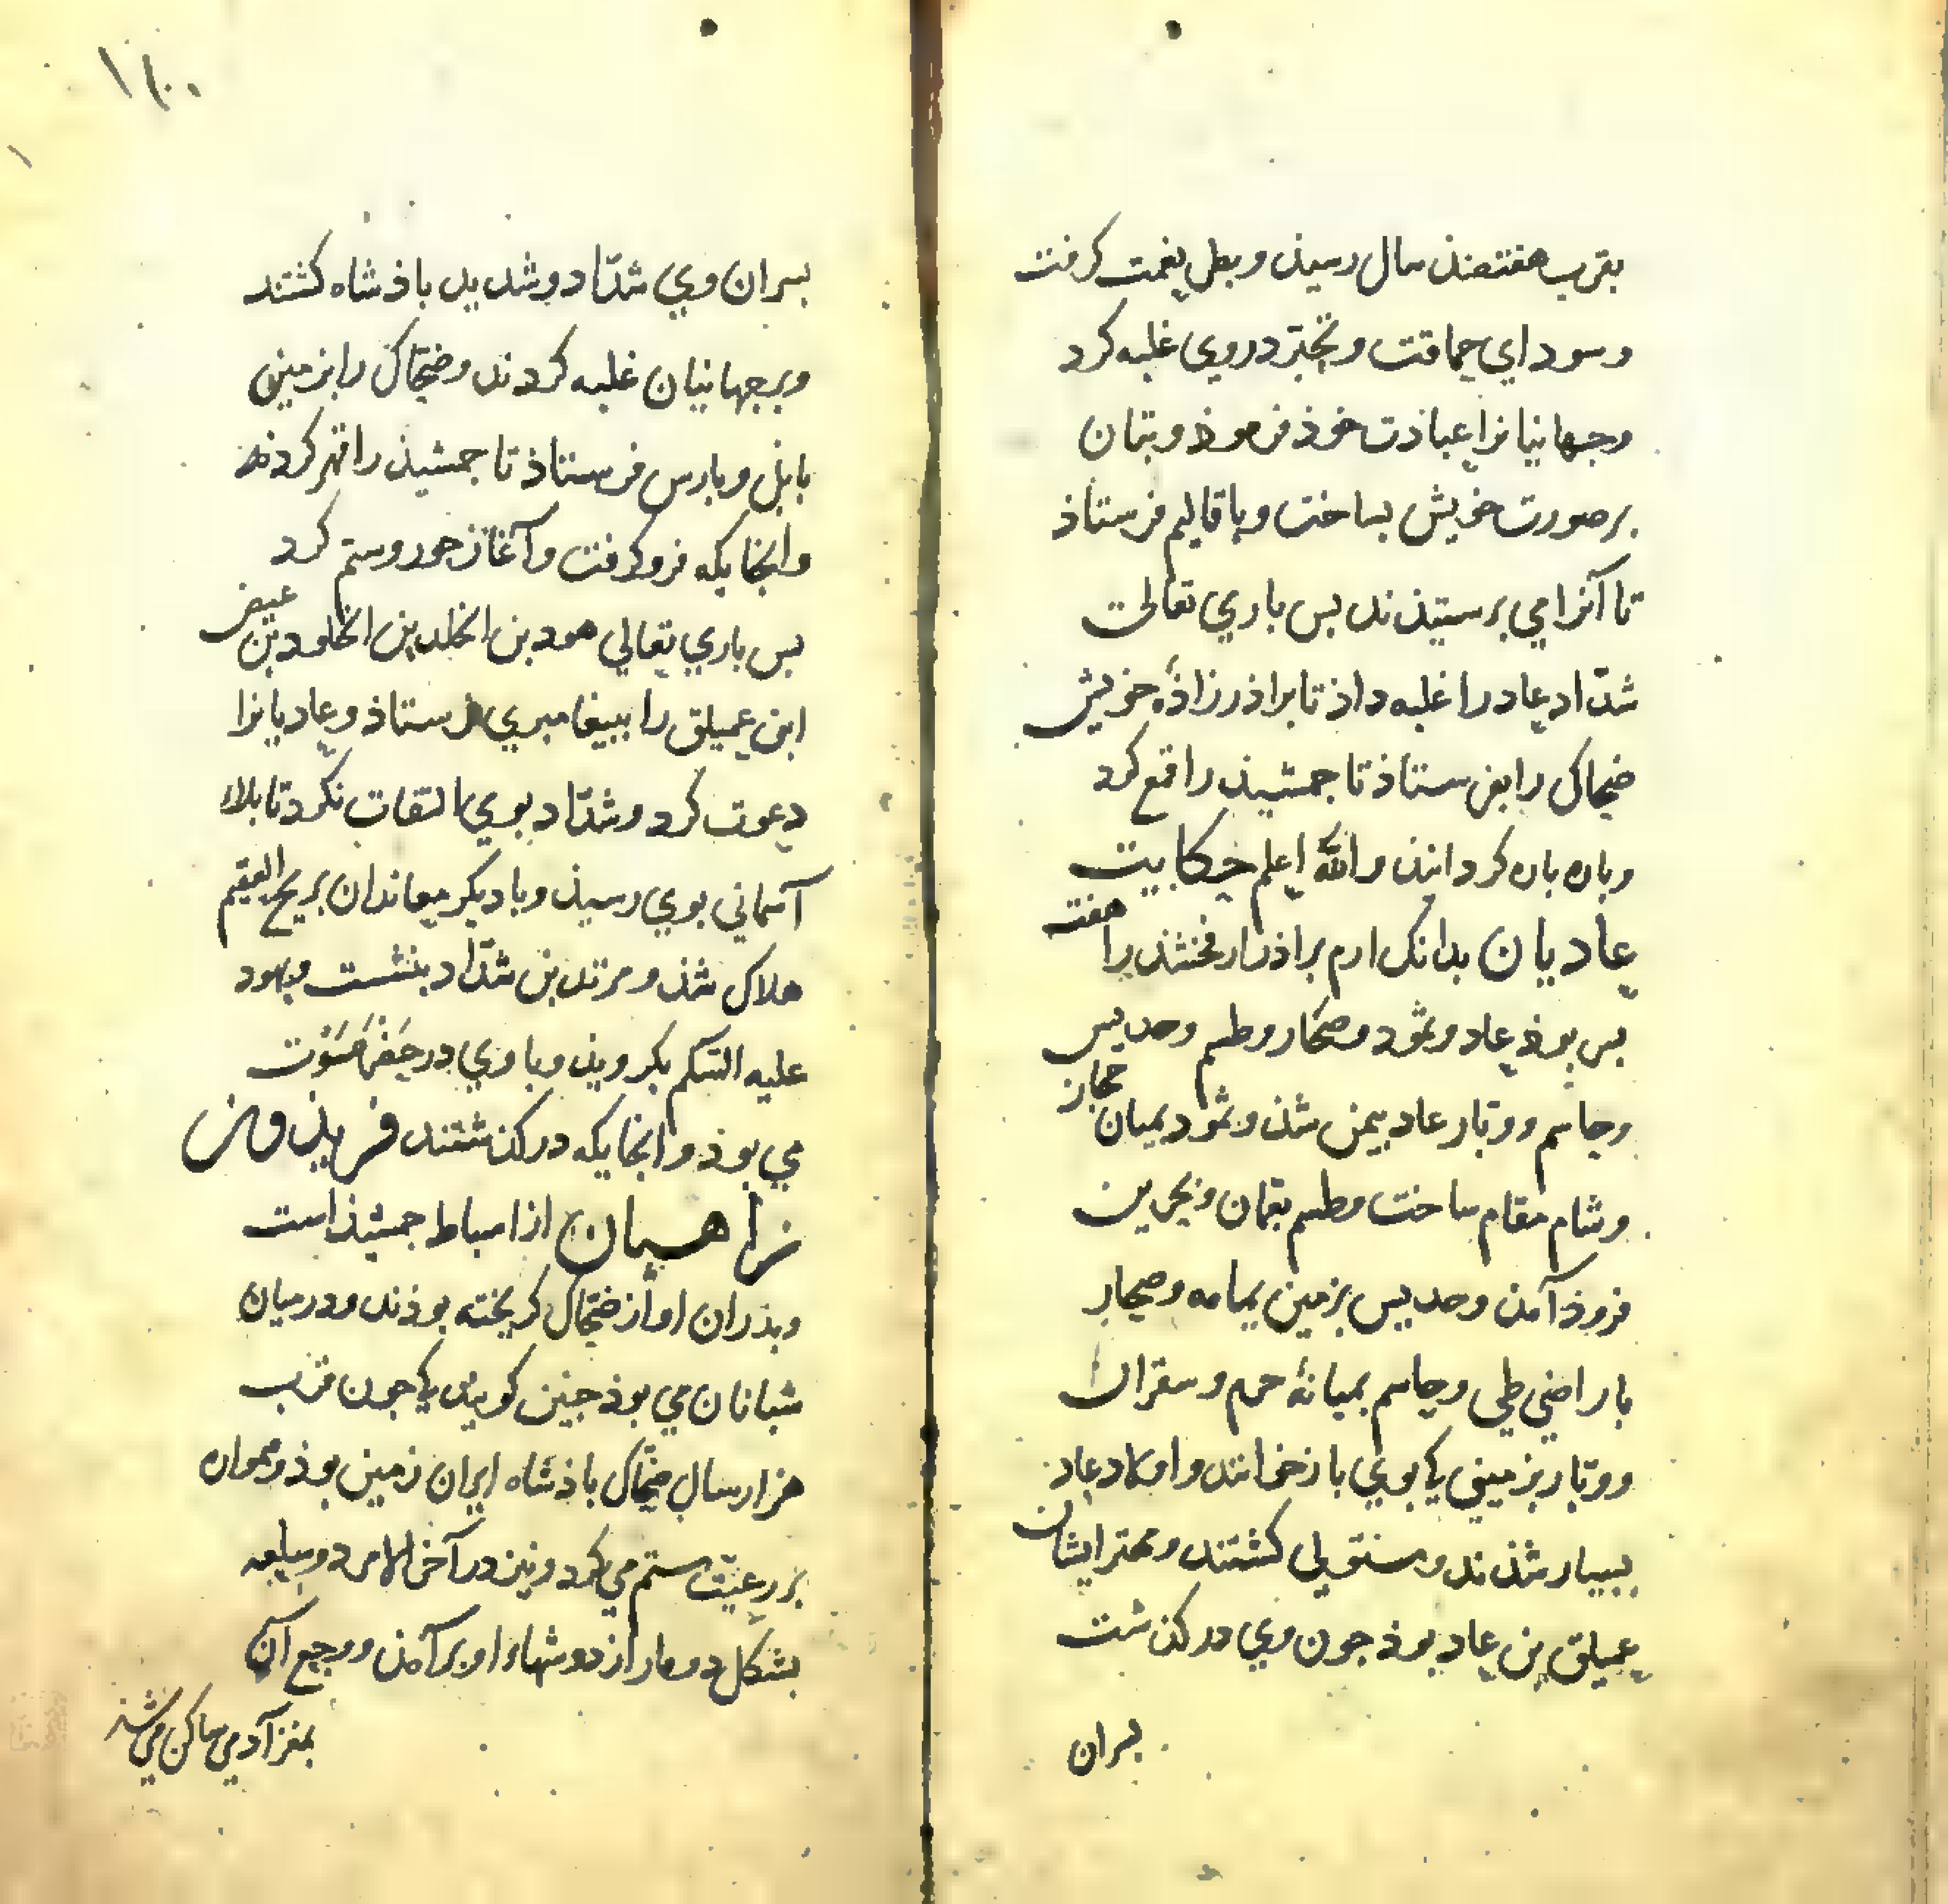 بقرب هفتصذ سال رسیذ و بطر نعمت کرفت
و سوداي حماقت و تجبّر در وي غلبه کرد
و جهانیانرا عبادت خوذ فرموذ و بتان
بر صورت خویش بساخت و باقالیم فرستاذ
تا آنرا مي برستیذند بس باري تعالی
شدّاد عاد را غلبه داذ تا براذرزاذهٔ خویش
ضحاک را بفرستاذ تا جمشیذ را قمع کرد
و باره باره کردانیذ والله اعلم حکایت
عادیان بدانک ارم براذر ارفخشذ را هفت
بس بوذ عاد و ثمود و صحار و طسم و جدیس
و جاسم و وبار عاد بیمن شذ و ثمود بمیان حجاز
و شام مقام ساخت و طسم بعمان و بحرین
فروذ آمذ و جدیس بزمین یمامه و صحار
باراضي طي و جاسم بمیانهٔ حرم و سفوان
و وبار بزمیني که بوي باز خوانند و اولاد عاد
بسیار شذند و مستولي کشتند و مهتر ایشان
عمیلق بن عاد بوذ جون وي در کذشت
بسران
۱۰
بسران وي شدّاد و شدید باذشاه کشتند
و برجهانیان غلبه کردند و ضحّاک را بزمین
بابل و بارس فرستاذ تا جمشیذ را قهر کرد
و انجایکه فرو کرفت و آغاز جور و ستم کرد
بس باري تعالي هود بن الخلد بن الخلود بن عیص
ابن عمیلق را ببیغامبري فرستاذ و عادیانرا
دعوت کرد و شدّاد بوي التفات نکرد تا بلاء
آسماني بوي رسیذ و با دیکر معاندان بریح العقیم
هلاک شذ و مرثد بن شدّاد بنشست و بهود
علیه السّلم بکرویذ و با وي در حَضْرَمَوْت
مي بوذ و انجایکه در کذشتند فریذون
نراهیمان از اسباط جمشیذ است
و بذران او از ضحّاک کریخته بوذند و در میان
شبانان مي بوذ جنین کویند که جون قرب
هزار سال ضحّاک باذشاه ایران زمین بوذ و همواره
بر رعیّت ستم مي کرد و نیز در آخر الامر دو سلعه
بشکل دو مار از دوشهاء او بر آمذ و وجع آن
بمغز آدمي ساکن مي شذ